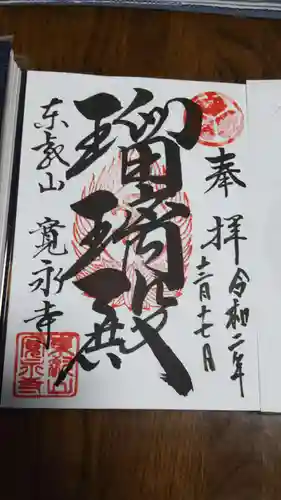 奉拝
令和二年
十二月十七日
瑠璃殿
東叡山
寛永寺
東叡山
寛永寺